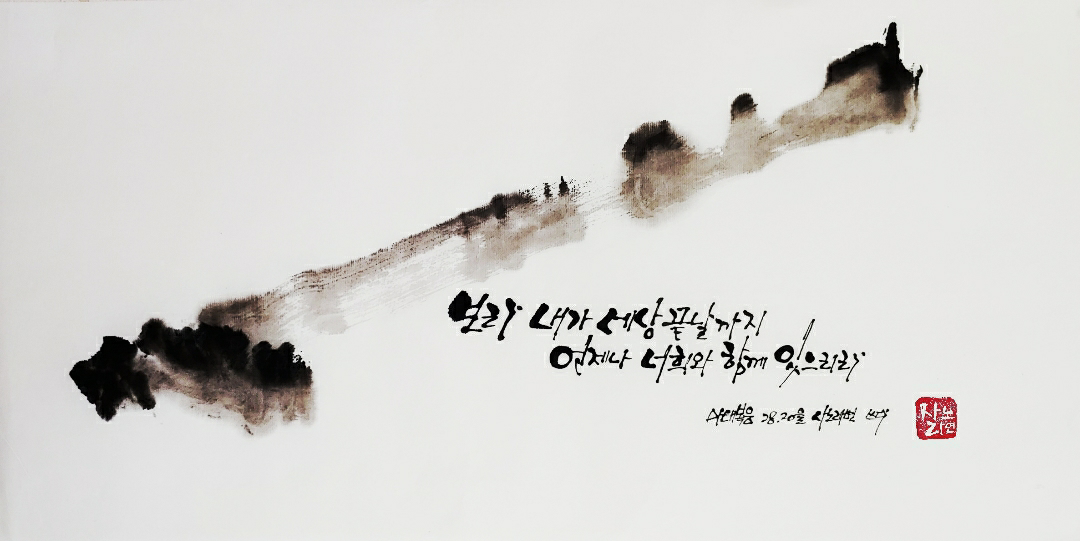 보라 내가 세상끝날까지
언제나 너희와 함께 있으리라
마태복음 28.20을